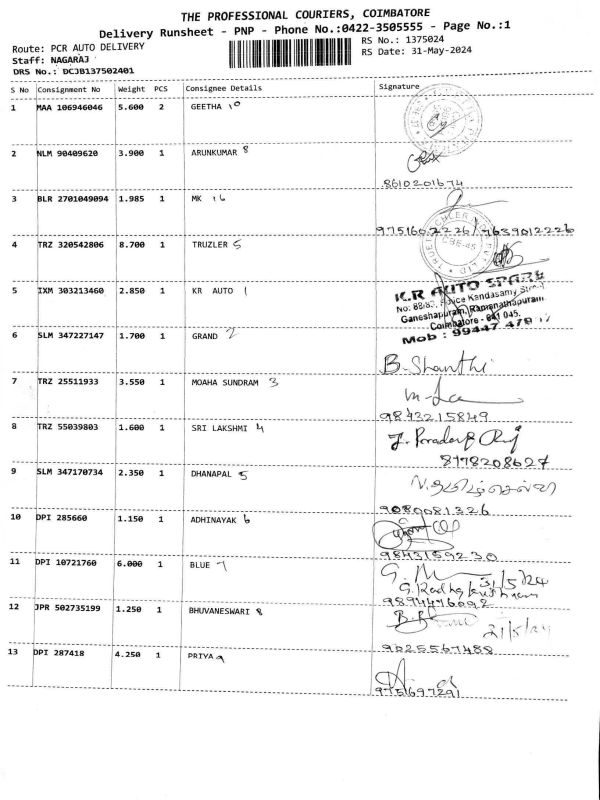 THE PROFESSIONAL COURIERS, COIMBATORE
Delivery Runsheet - PNP - Phone No.:0422-3505555 - Page No.:1
Route: PCR AUTO DELIVERY
RS No.: 1375024
Staff: NAGARAJ
RS Date: 31-May-2024
DRS No.: DCJB137502401
S No Consignment No Weight PCS Consignee Details Signature
1 MAA 106946046 5.600 2 GEETHA 10
2 NLM 90409620 3.900 1 ARUNKUMAR 8
8610201674
3 BLR 2701049094 1.985 1 MK 16
9751602226/7639012226
4 TRZ 320542806 8.700 1 TRUZLER 5
CBE-45
5 IXM 303213460 2.850 1 KR AUTO 1
K.R AUTO SPARE
Ganeshapuram, Ramanathapuram
Coimbatore - 641 045.
Mob : 99447
6 SLM 347227147 1.700 1 GRAND 2
B. Shanthi
7 TRZ 25511933 3.550 1 MOAHA SUNDRAM 3
9843215849
8 TRZ 55039803 1.600 1 SRI LAKSHMI 4
8778208627
9 SLM 347170734 2.350 1 DHANAPAL 5
9080081326
10 DPI 285660 1.150 1 ADHINAYAK 6
9843159230
11 DPI 10721760 6.000 1 BLUE 7
31/5/24
9894476092
12 JPR 502735199 1.250 1 BHUVANESWARI 8
31/5/24
9025567488
13 DPI 287418 4.250 1 PRIYA 9
9751697291